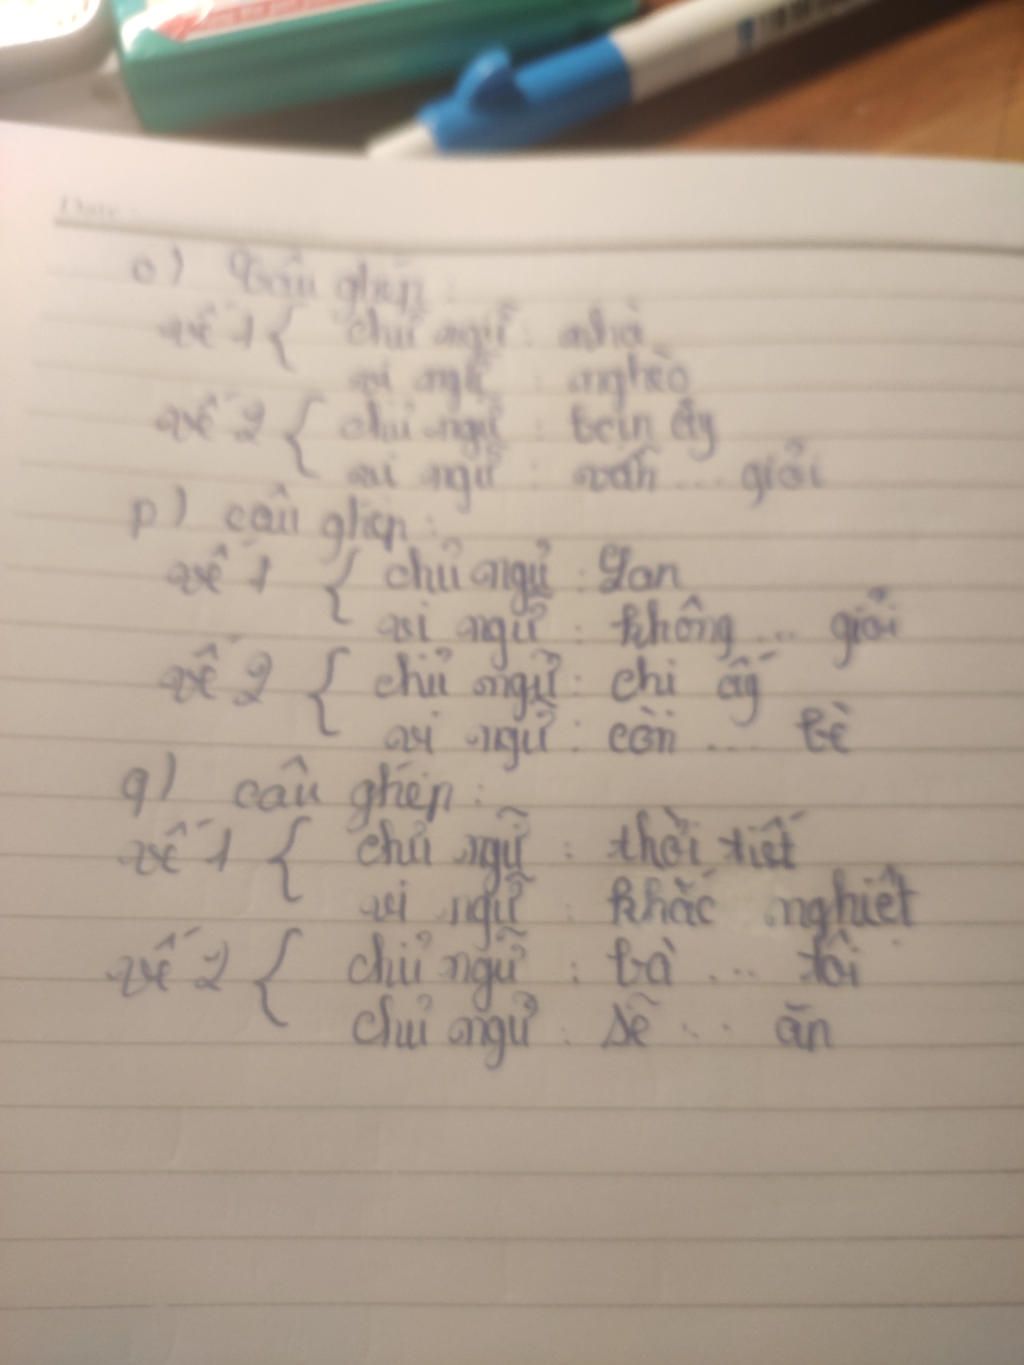 Date
o) Câu ghép:
vế 1 { chủ ngữ: nhà
vị ngữ: nghèo
vế 2 { chủ ngữ: bạn ấy
vị ngữ: vẫn ... giỏi
p) câu ghép:
vế 1 { chủ ngữ: Lan
vị ngữ: không ... giỏi
vế 2 { chủ ngữ: chị ấy
vị ngữ: còn ... bè
q) câu ghép:
vế 1 { chủ ngữ: thời tiết
vị ngữ: khắc nghiệt
vế 2 { chủ ngữ: bà ... tôi
chủ ngữ: sẽ ... ăn